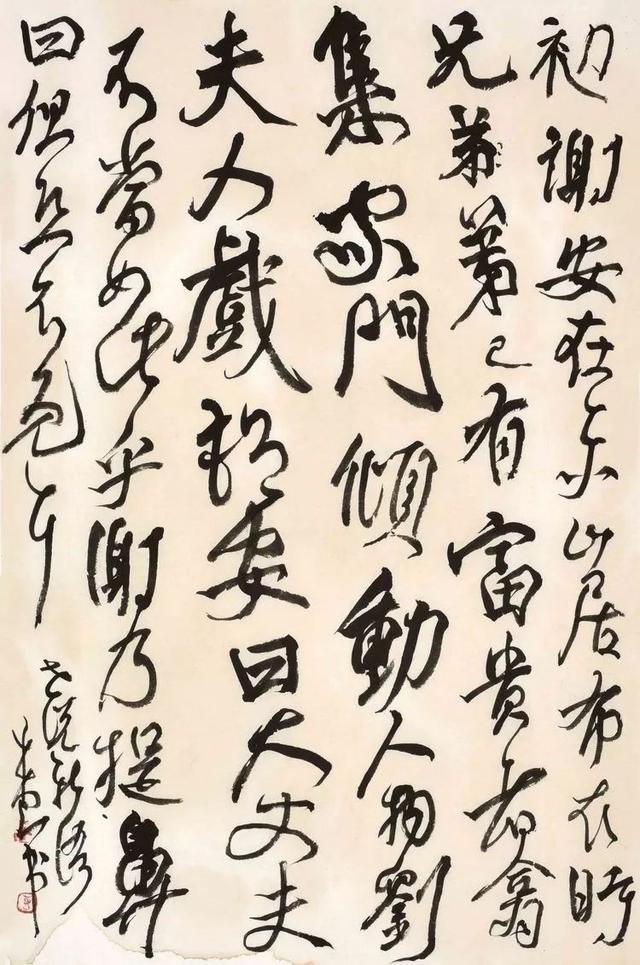 初謝安在東山居布衣時
兄弟弟已有富貴者翕
集家門傾動人物劉
夫人戲謂安曰大丈夫
不當如此乎謝乃捉鼻
曰但恐不免耳
世說新語
書